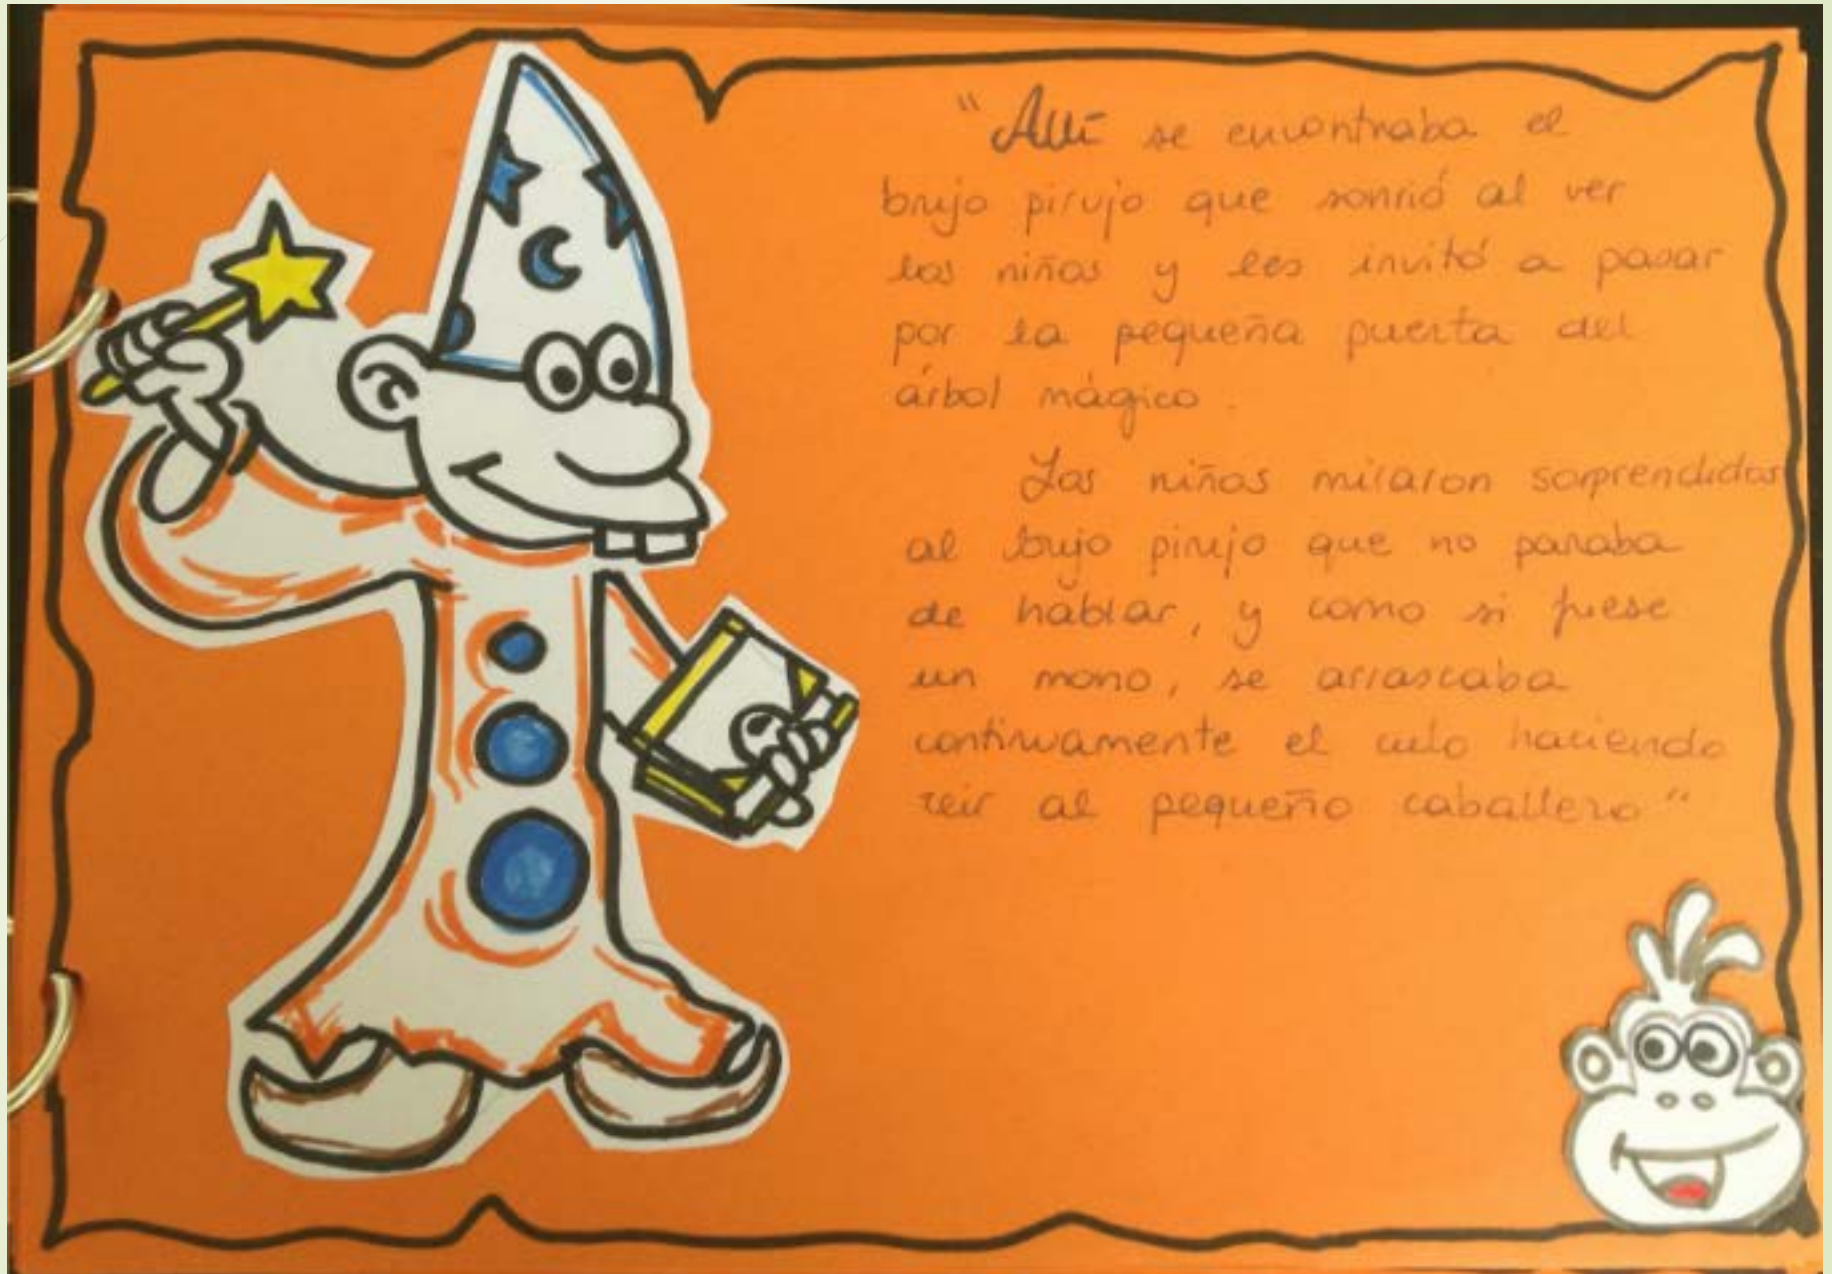 "Allí se encontraba el
brujo pirujo que sonrió al ver
los niños y les invitó a pasar
por la pequeña puerta del
árbol mágico.
Los niños miraron sorprendidos
al brujo pirujo que no paraba
de hablar, y como si fuese
un mono, se arrascaba
continuamente el culo haciendo
reir al pequeño caballero"